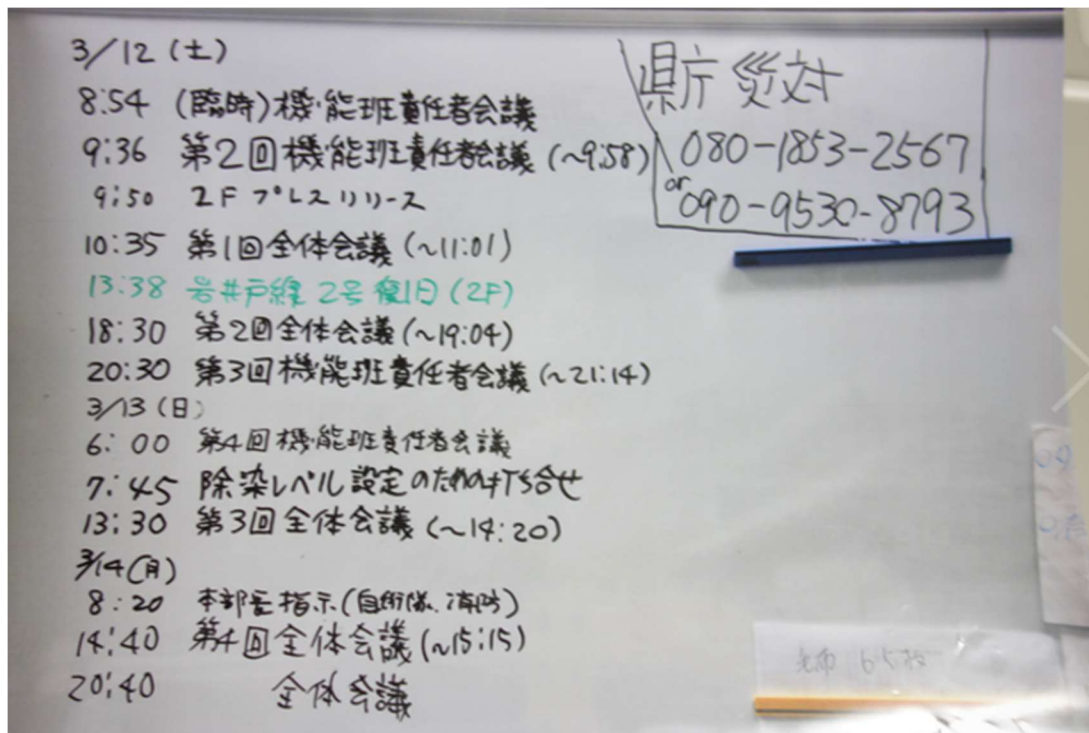 3/12(土)
8:54 (臨時)機能班責任者会議
9:36 第2回機能班責任者会議(~9:58)
9:50 2Fプレスリリース
10:35 第1回全体会議(~11:01)
13:38 岩井戸線2号復旧(2F)
18:30 第2回全体会議(~19:04)
20:30 第3回機能班責任者会議(~21:14)
3/13(日)
6:00 第4回機能班責任者会議
7:45 除染レベル設定のための打ち合せ
13:30 第3回全体会議(~14:20)
3/14(月)
8:20 本部長指示(自衛隊、消防)
14:40 第4回全体会議(~15:15)
20:40 全体会議
県庁災対
080-1853-2567
or 090-9530-8793